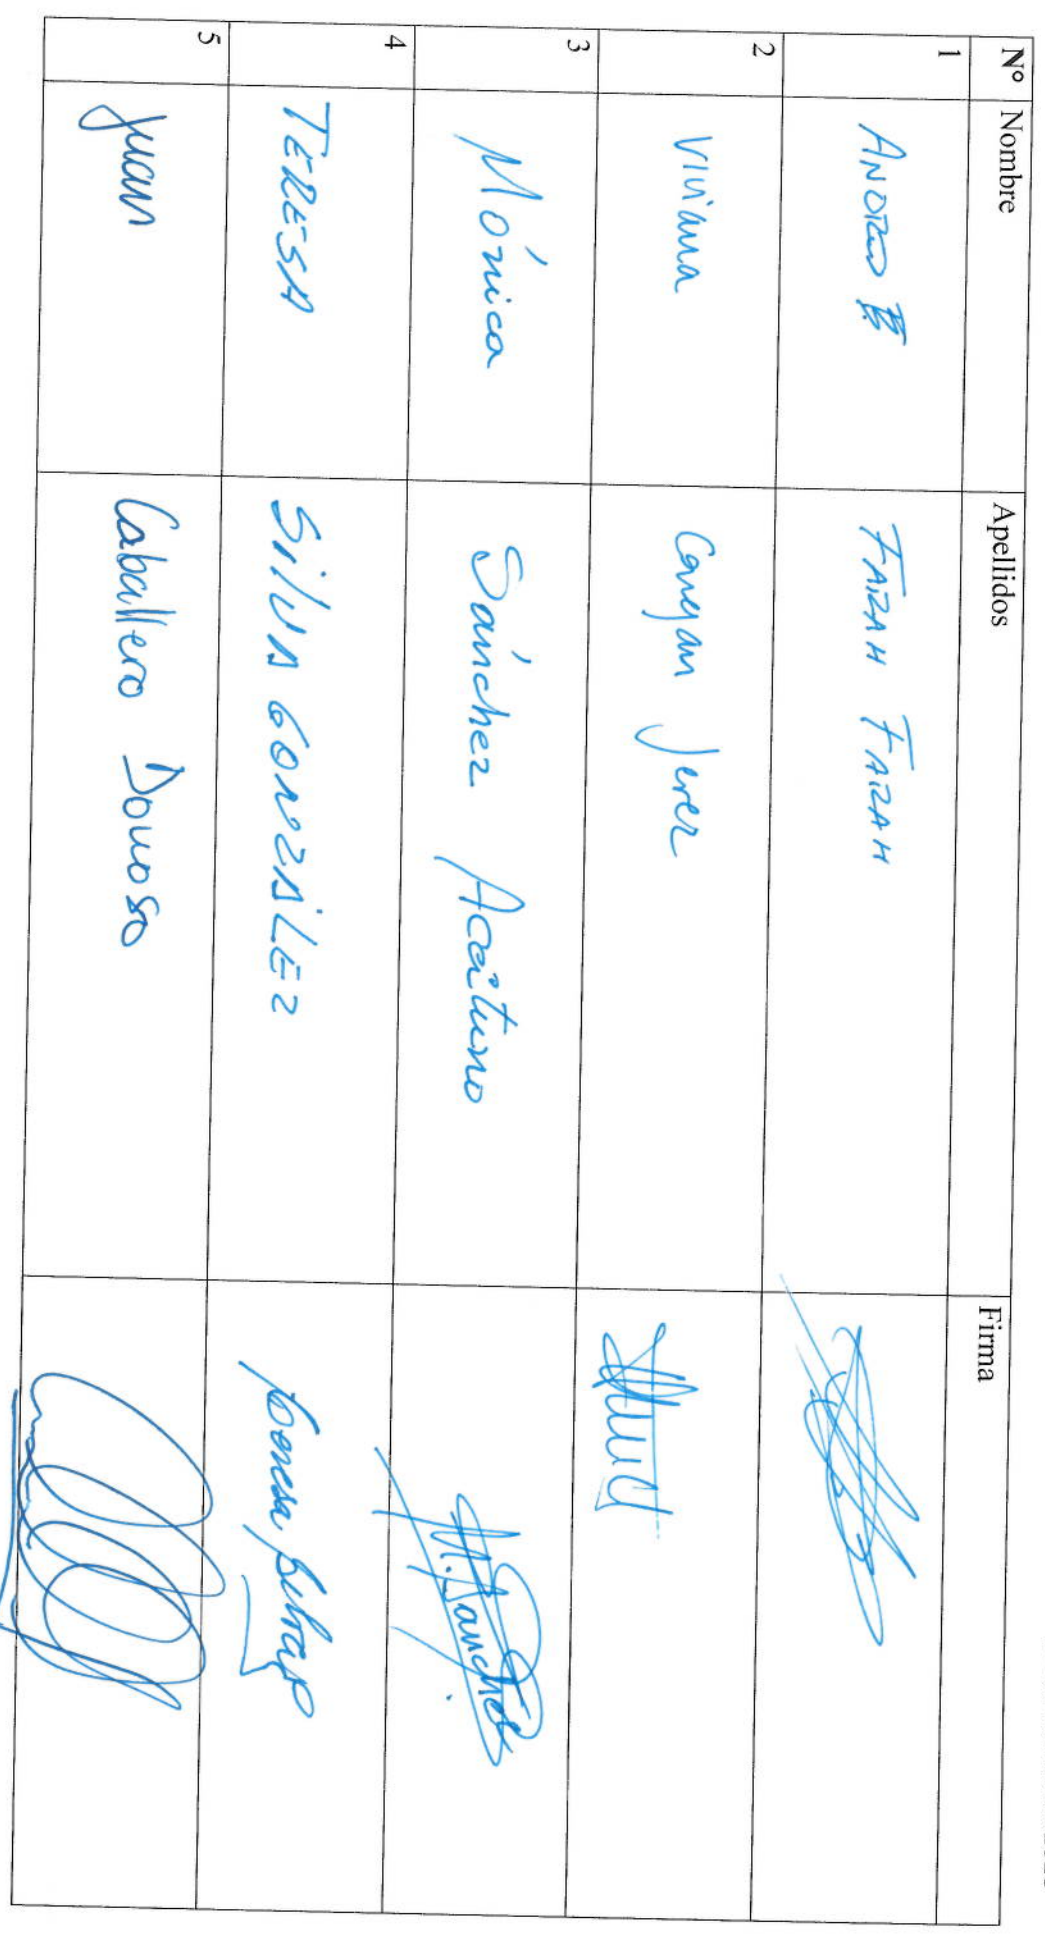 Nº Nombre Apellidos Firma
1 FARAH FARAH
2 Viviana Jerez
3 Mónica Sánchez Aceituno M. Sanchez
4 TERESA SILVA GONZÁLEZ Teresa Silva
5 Juan Caballero Donoso